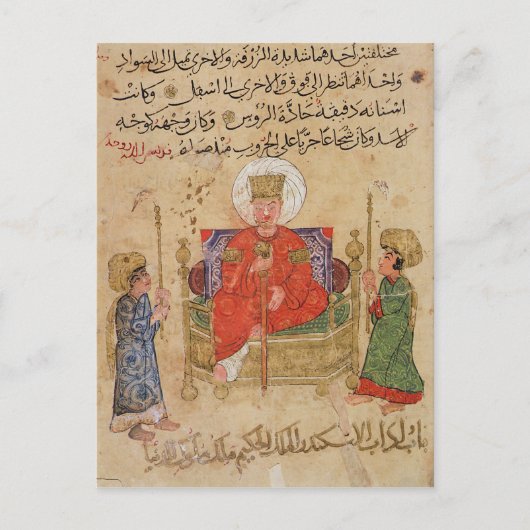 مختلفتين احدهما شديدة الزرقة والاخرى تميل الى السواد
واحداهما تنظر الى فوق والاخرى الى اسفل وكانت
اسنانه دقيقة حادة الرؤس وكان وجهه كوجه
الاسد وكان شجاعا جريا على الحروب منذ صباه
باب اداب الاسكندر الملك الحكيم